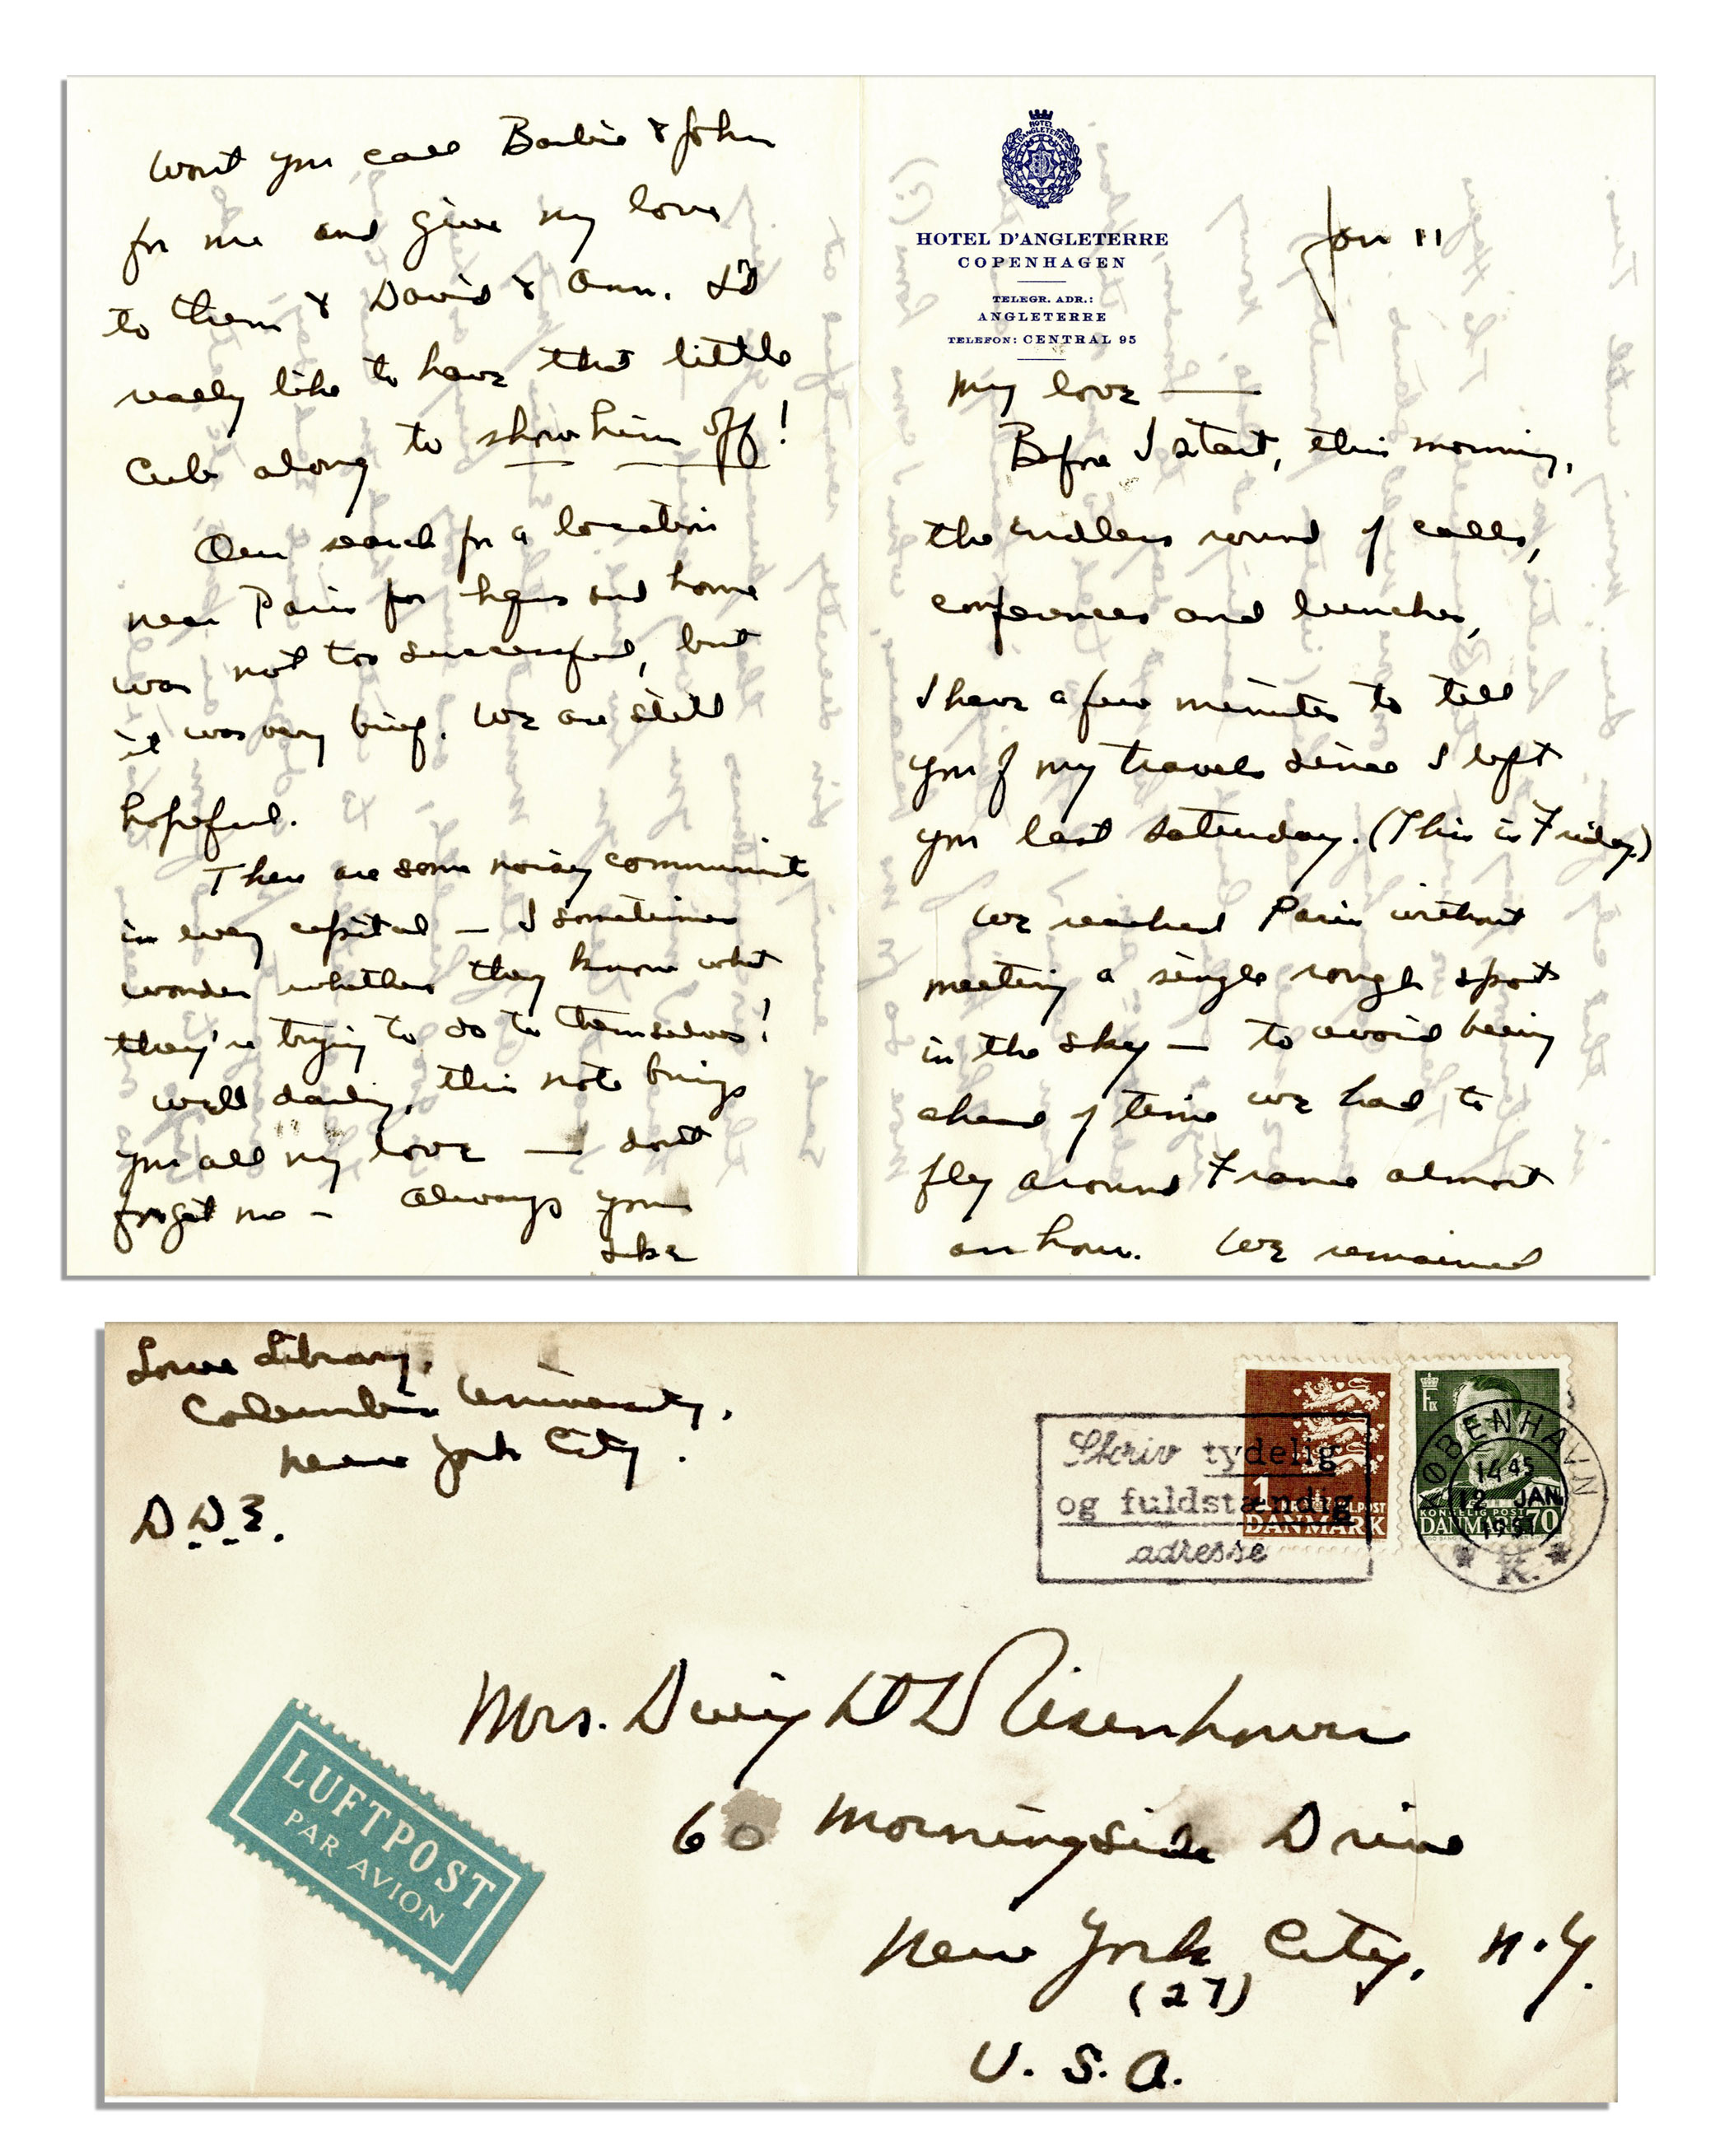 Won't you call Barbie & John
for me and give my love
to them & David & Ann. I'd
really like to have that little
cub along to show him off!
Our search for a location
near Paris for hqrs and home
was not too successful, but
it was very brief. We are still
hopeful.
There are some noisy communists
in every capital — I sometimes
wonder whether they know what
they're trying to do to themselves!
Well darling, this note brings
you all my love — don't
forget me – Always your
Ike
HOTEL D'ANGLETERRE
HOTEL D'ANGLETERRE
COPENHAGEN
TELEGR. ADR.:
ANGLETERRE
TELEFON: CENTRAL 95
Jan 11
My love —
Before I start, this morning,
the endless round of calls,
conferences and lunches,
I have a few minutes to tell
you of my travels since I left
you last Saturday. (This is Friday.)
We reached Paris without
meeting a single rough spot
in the sky — to avoid being
ahead of time we had to
fly around France almost
an hour. We remained
Lowe Library,
Columbia University,
New York City.
D.D.E.
Skriv tydelig
og fuldstændig
adresse
1
DANMARK
F IX
KONGELIG POST
DANMARK 70
KØBENHAVN
1445
12 JAN.
1951
* K. *
Mrs. Dwight D Eisenhower
60 Morningside Drive
New York City, N.Y.
(27)
U.S.A.
LUFTPOST
PAR AVION